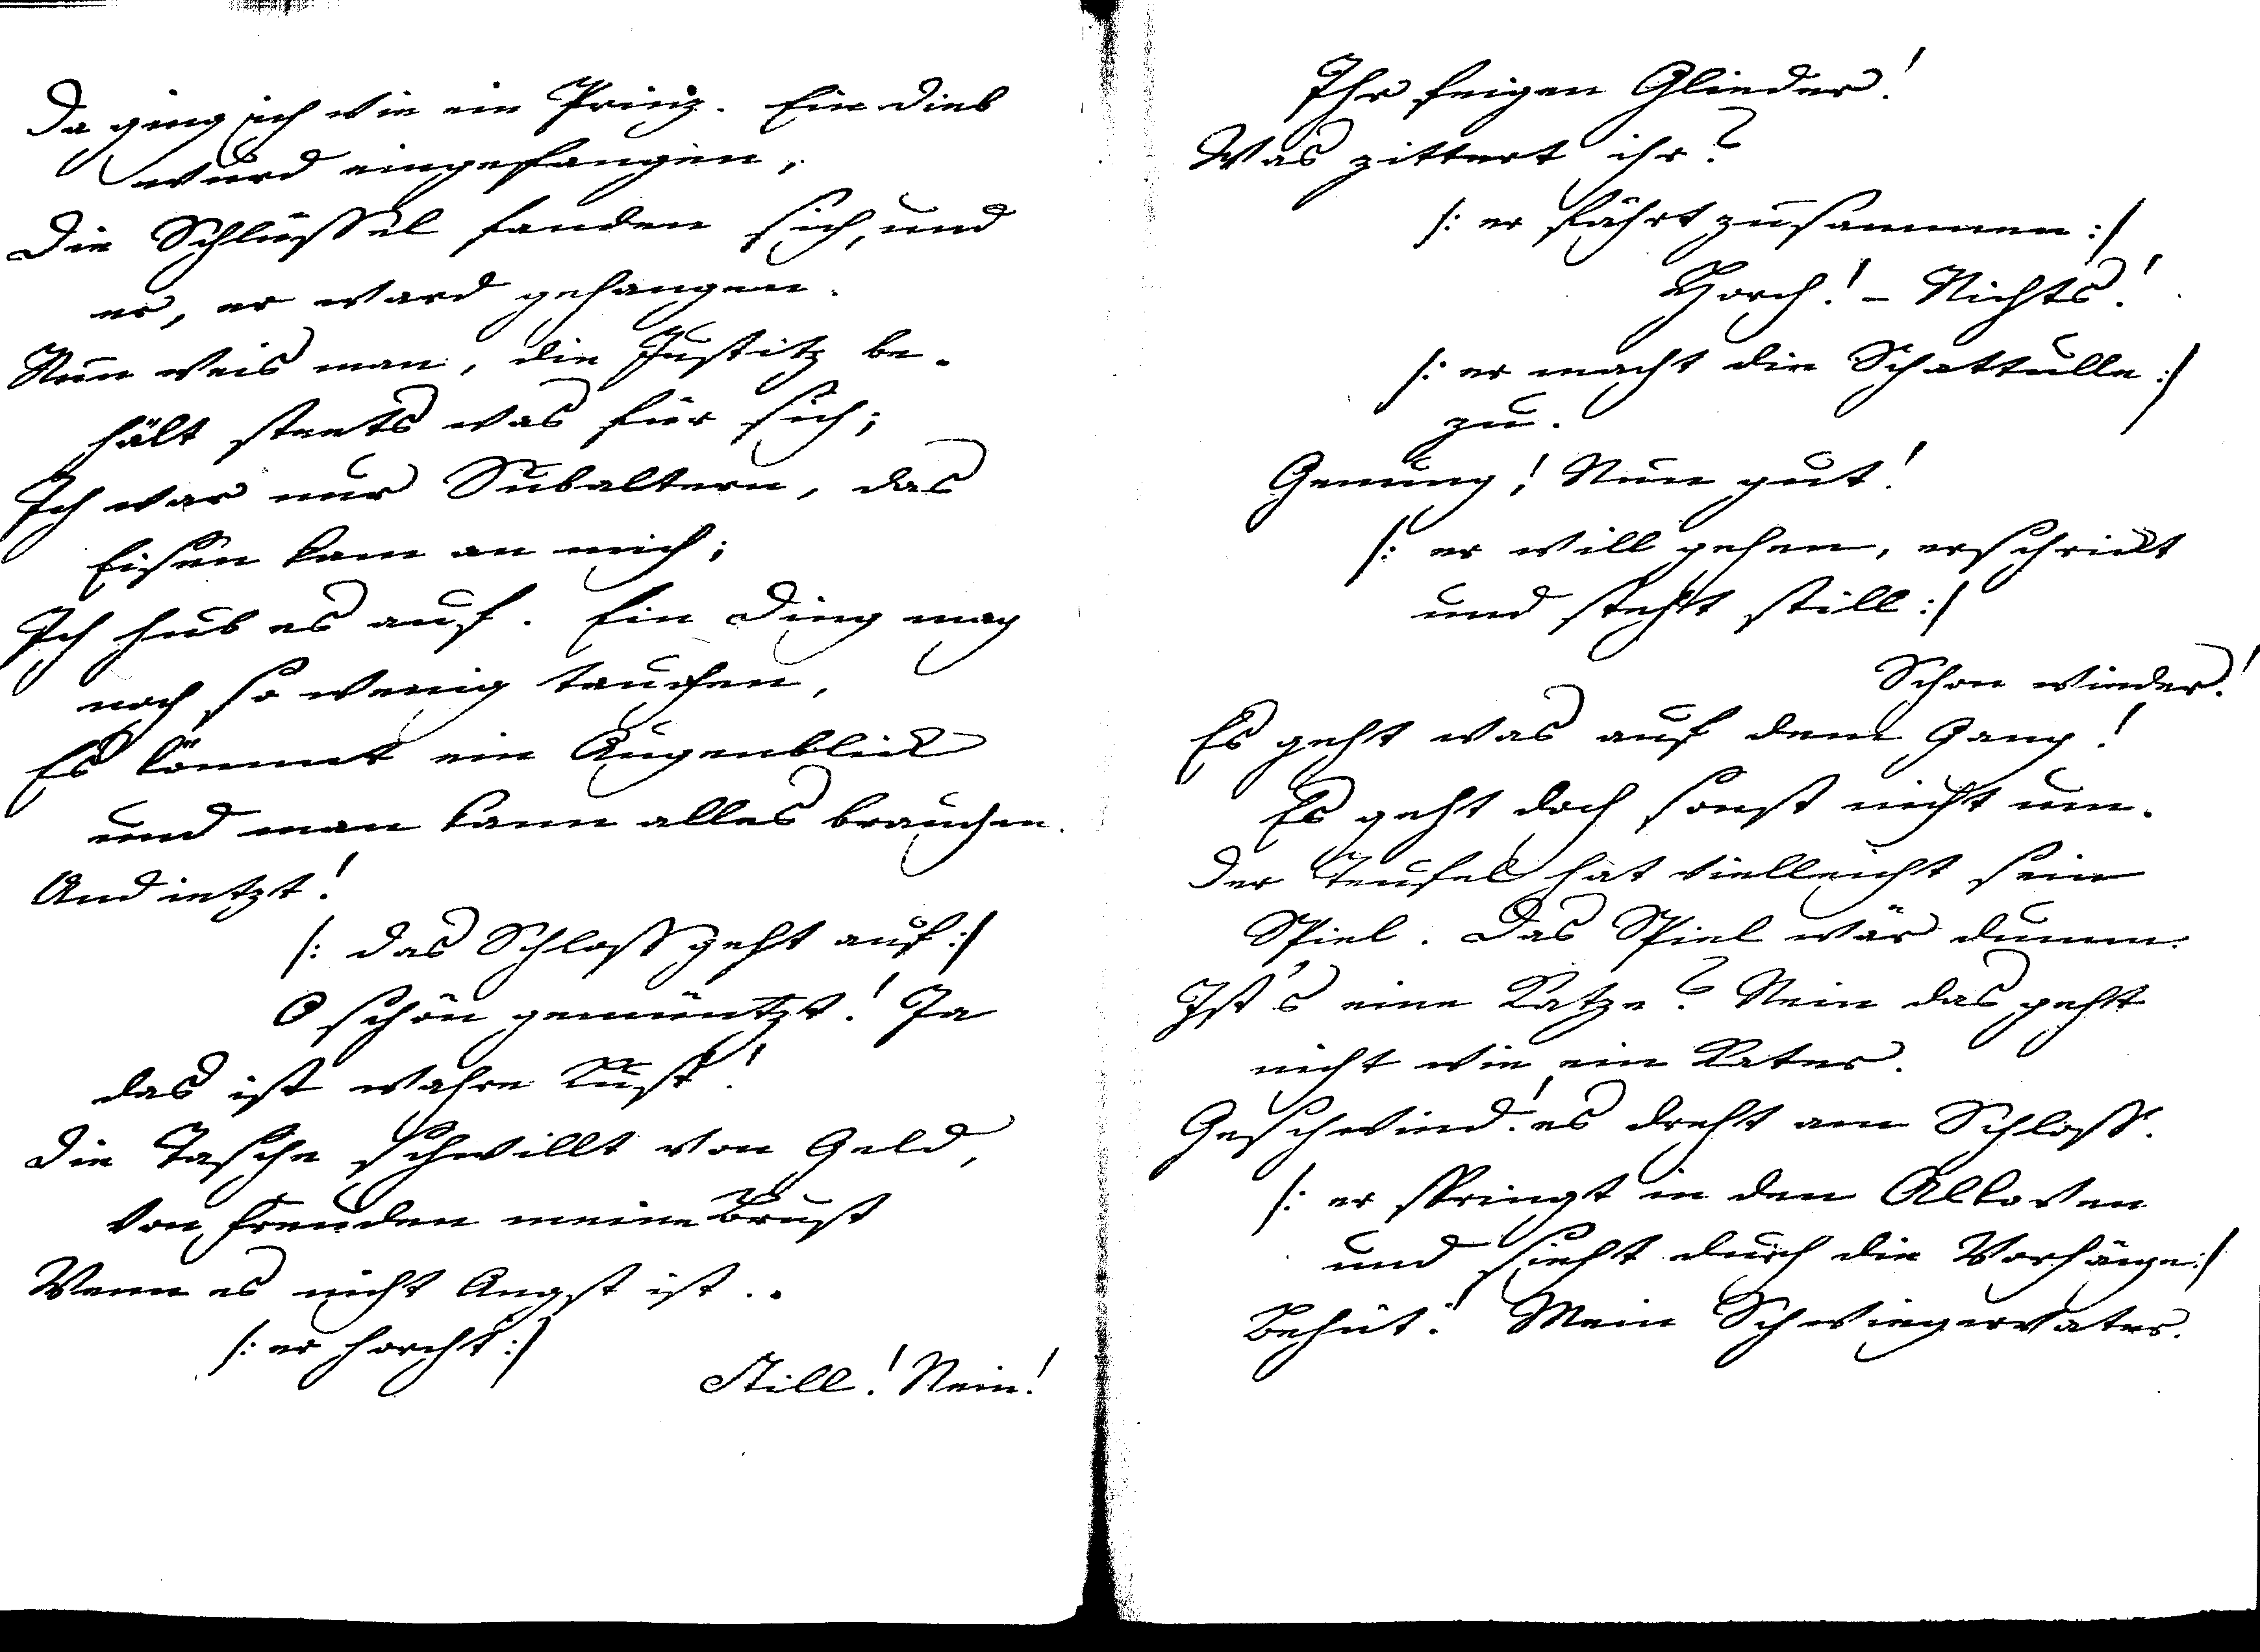 Da ging ich wie ein Prinz. Ein Dieb
wurd eingefangen,
Die Schlüssel fanden sich, und
er, er ward gehangen.
Nun weis man, die Justitz be-
hält steets was für sich;
Ich war nur Subaltern, das
Eisen kam an mich;
Ich hub es auf. Ein Ding mag
noch so wenig taugen,
Es kömmt ein Augenblick
und man kann alles brauchen.
Und ietzt!
/: das Schloss geht auf :/
O schön gemüntzt! Ja
das ist wahre Lust!
Die Tasche schwillt von Geld,
von Freuden meine Brust
Wenn es nicht Angst ist..
/: er horcht :/
Still! Nein!
Ihr feigen Glieder!
Was zittert ihr?
/: er fährt zusammen :/
Horch! – Nichts!
/: er macht die Schattulle :/
zu.
Genung! Nun gut!
/: er will gehen, erschrickt
und steht still :/
Schon wieder!
Es geht was auf dem Gang!
Es geht doch sonst nicht um.
Der Teufel hat vielleicht sein
Spiel. Das Spiel wär dumm.
Ist's eine Katze? Nein das geht
nicht wie ein Kater.
Geschwind! es dreht am Schloss.
/: er springt in den Alkoven
und sieht durch die Vorhänge :/
Behüt! Mein Schwiegervater.